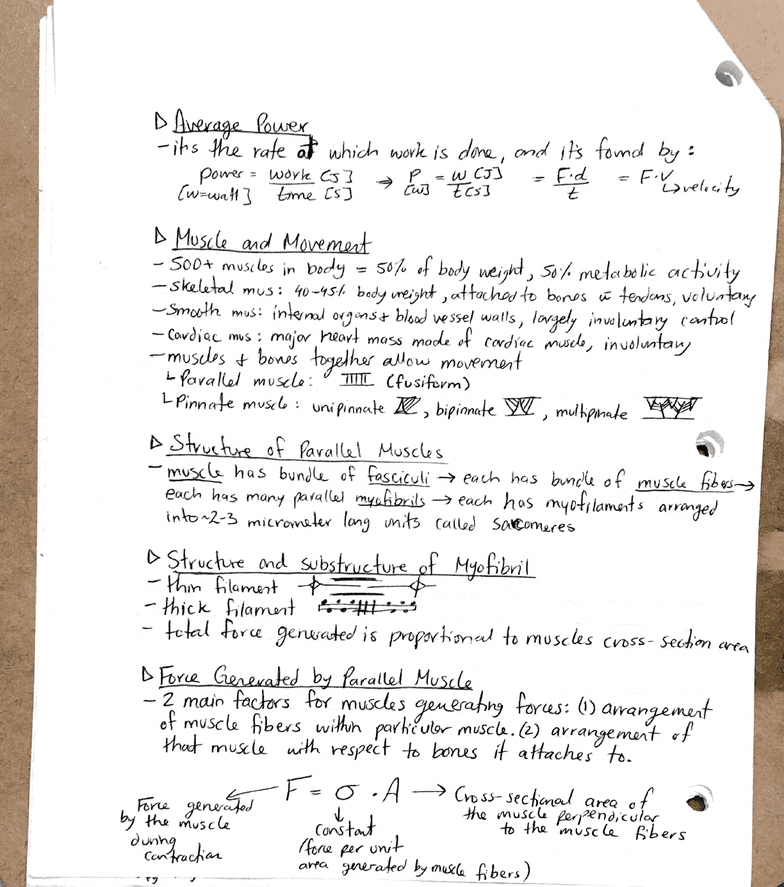 ▷ Average Power
- it's the rate at which work is done, and it's found by:
power = work [J] / time [s] → P [W] = W [J] / t [s] = F·d / t = F·V ↳ velocity
[W=watt]
▷ Muscle and Movement
- 500+ muscles in body = 50% of body weight, 50% metabolic activity
- Skeletal mus: 40-45% body weight, attached to bones w̄ tendons, voluntary
- Smooth mus: internal organs + blood vessel walls, largely involuntary control
- Cardiac mus: major heart mass made of cardiac muscle, involuntary
- muscles + bones together allow movement
↳ Parallel muscle: (fusiform)
↳ Pinnate muscle: unipinnate, bipinnate, multipinate
▷ Structure of Parallel Muscles
- muscle has bundle of fasciculi → each has bundle of muscle fibers →
each has many parallel myofibrils → each has myofilaments arranged
into ~2-3 micrometer long units called sarcomeres
▷ Structure and substructure of Myofibril
- thin filament
- thick filament
- total force generated is proportional to muscles cross-section area
▷ Force Generated by Parallel Muscle
- 2 main factors for muscles generating forces: (1) arrangement
of muscle fibers within particular muscle. (2) arrangement of
that muscle with respect to bones it attaches to.
F = σ · A
Force generated
by the muscle
during
contraction
constant
(force per unit
area generated by muscle fibers)
Cross-sectional area of
the muscle perpendicular
to the muscle fibers